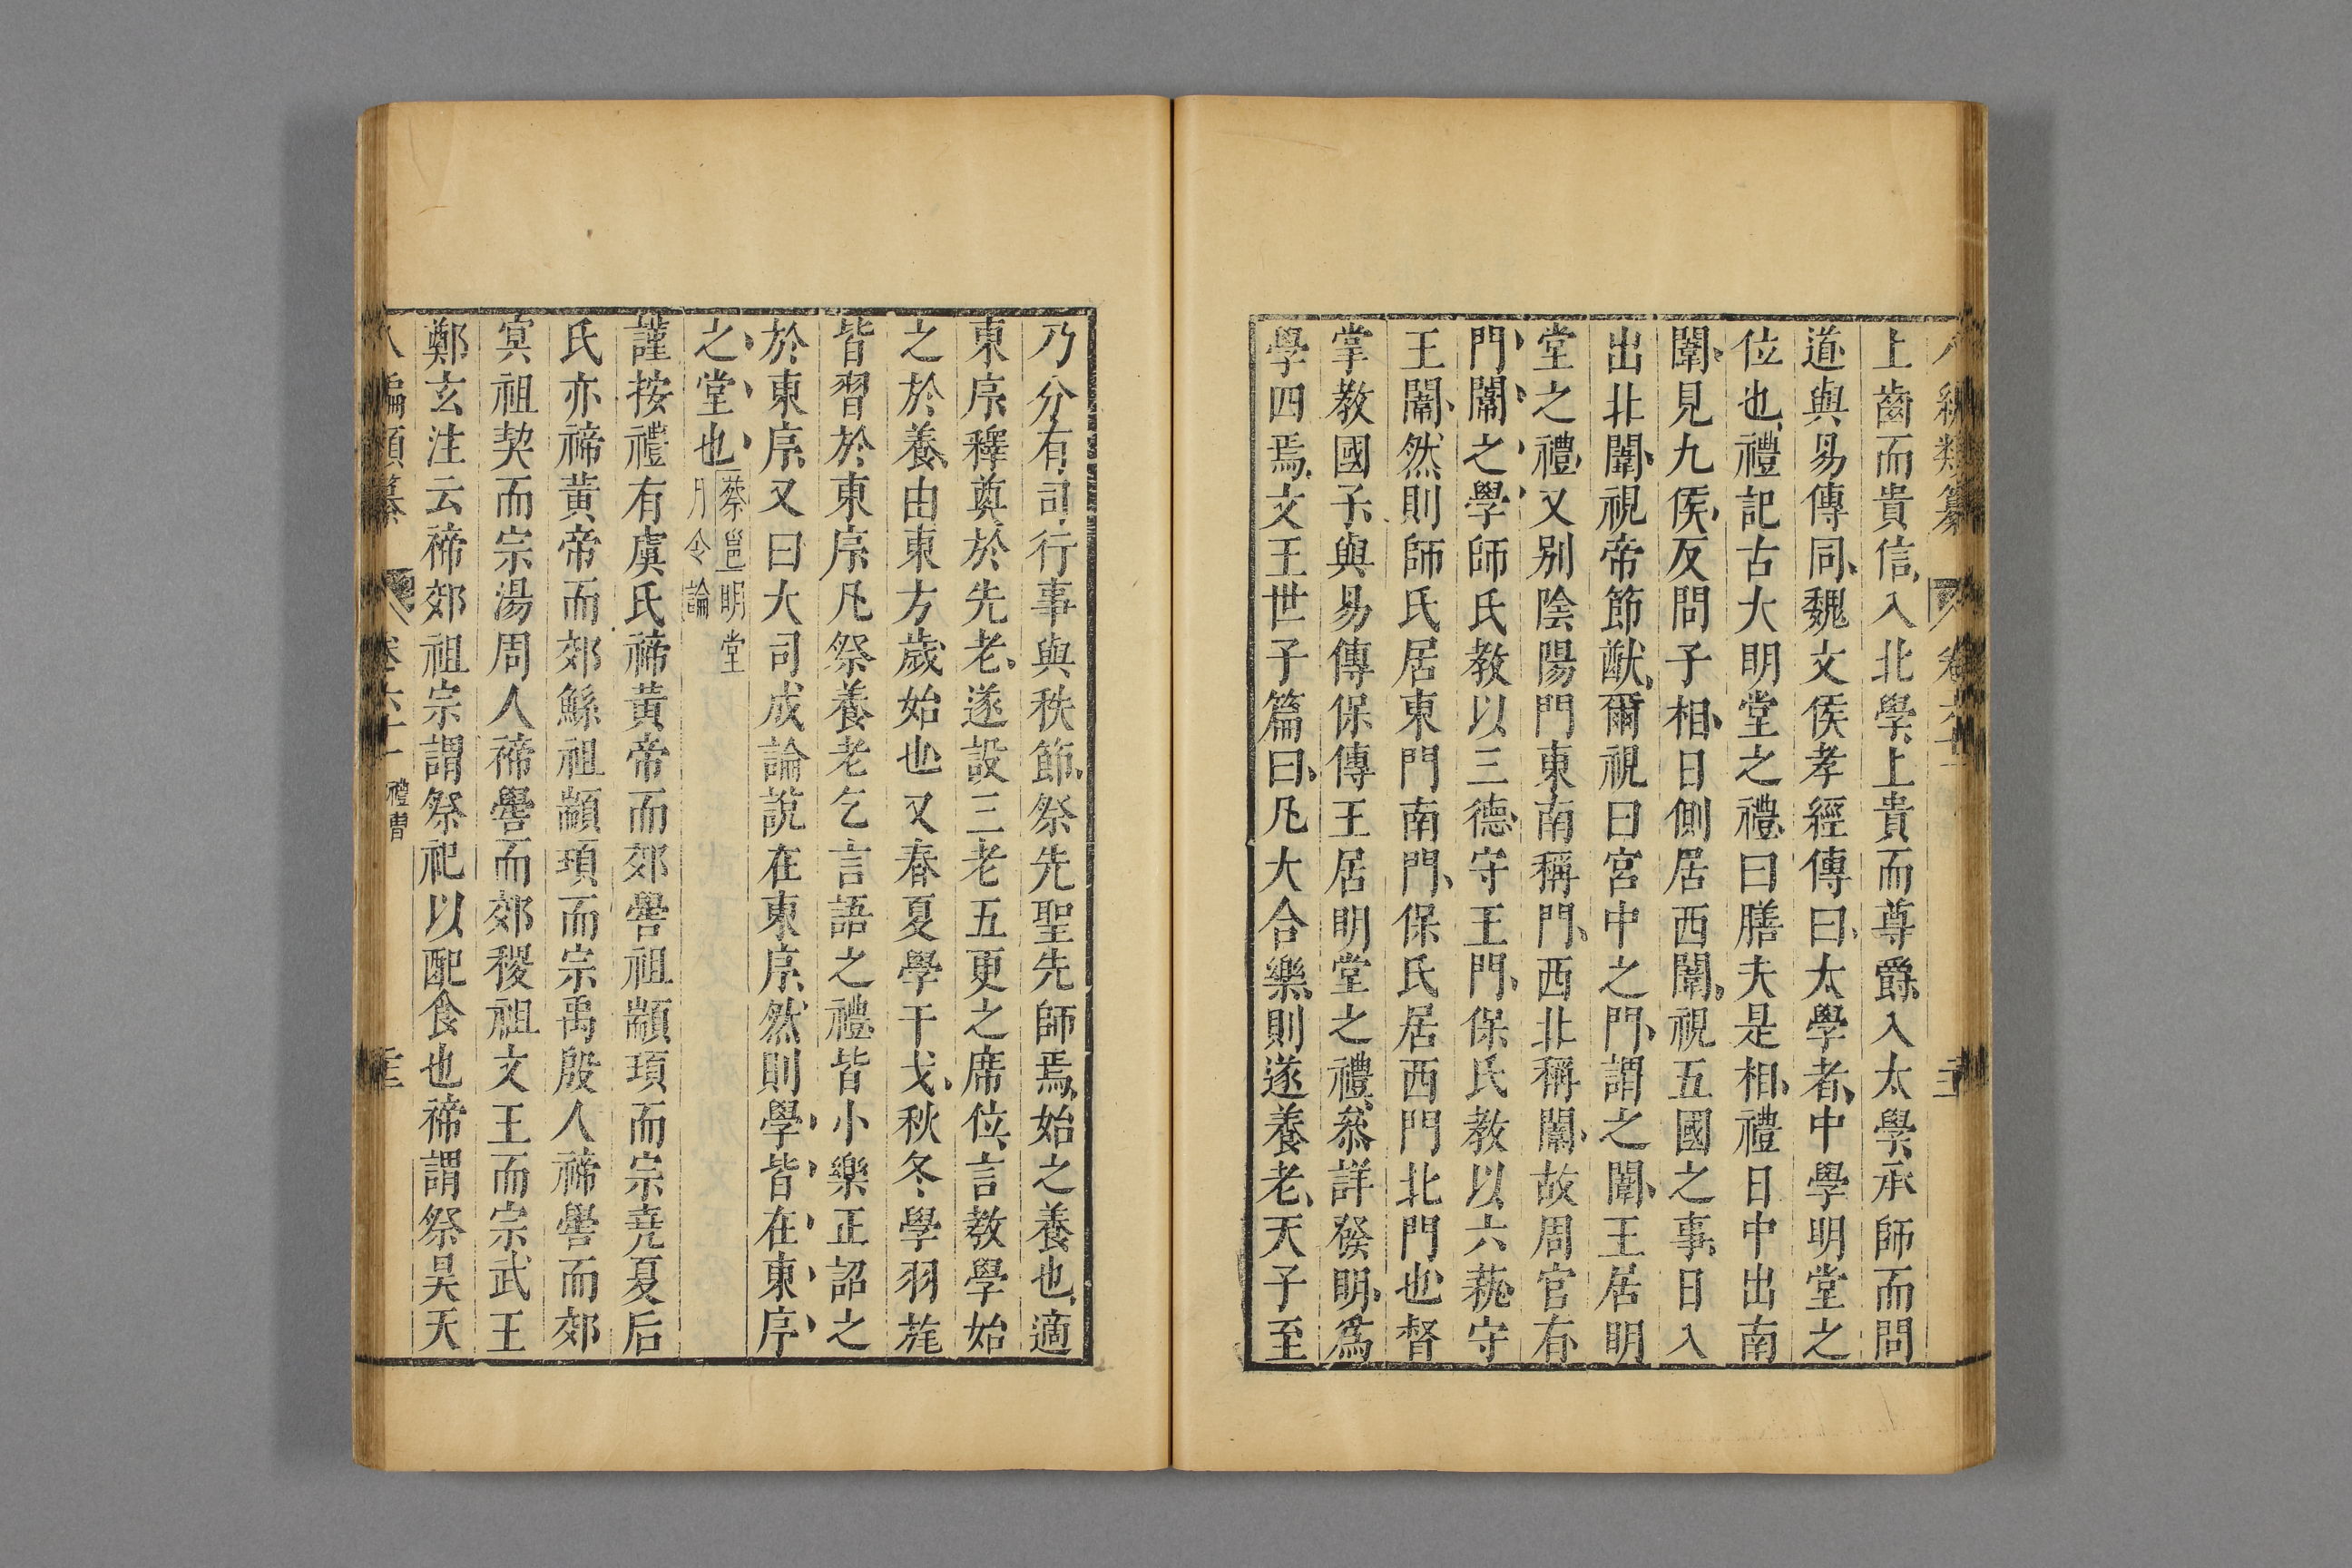 上齒而貴信入北學上貴而尊爵入太學承師而問
道與易傳同魏文侯孝經傳曰太學者中學明堂之
位也禮記古大明堂之禮曰膳夫是相禮日中出南
闈見九侯反問子相日側居西闈視五國之事日入
出北闈視帝節猷爾視曰宮中之門謂之闈王居明
堂之禮又别陰陽門東南稱門西北稱闈故周官有
門闈之學師氏教以三德守王門保氏教以六藝守
王闈然則師氏居東門南門保氏居西門北門也督
掌教國子與易傳保傳王居明堂之禮叅詳發明爲
學四焉文王世子篇曰凡大合樂則遂養老天子至
乃分有司行事與秩節祭先聖先師焉始之養也適
東序釋奠於先老遂設三老五更之席位言教學始
之於養由東方歲始也又春夏學干戈秋冬學羽旄
皆習於東序凡祭養老乞言語之禮皆小樂正詔之
於東序又曰大司成論說在東序然則學皆在東序
之堂也蔡邕明堂
月令論
謹按禮有虞氏禘黄帝而郊嚳祖顓頊而宗堯夏后
氏亦禘黄帝而郊鯀祖顓頊而宗禹殷人禘嚳而郊
冥祖契而宗湯周人禘嚳而郊稷祖文王而宗武王
鄭玄注云禘郊祖宗謂祭祀以配食也禘謂祭昊天
八編類纂 卷六十 禮曹